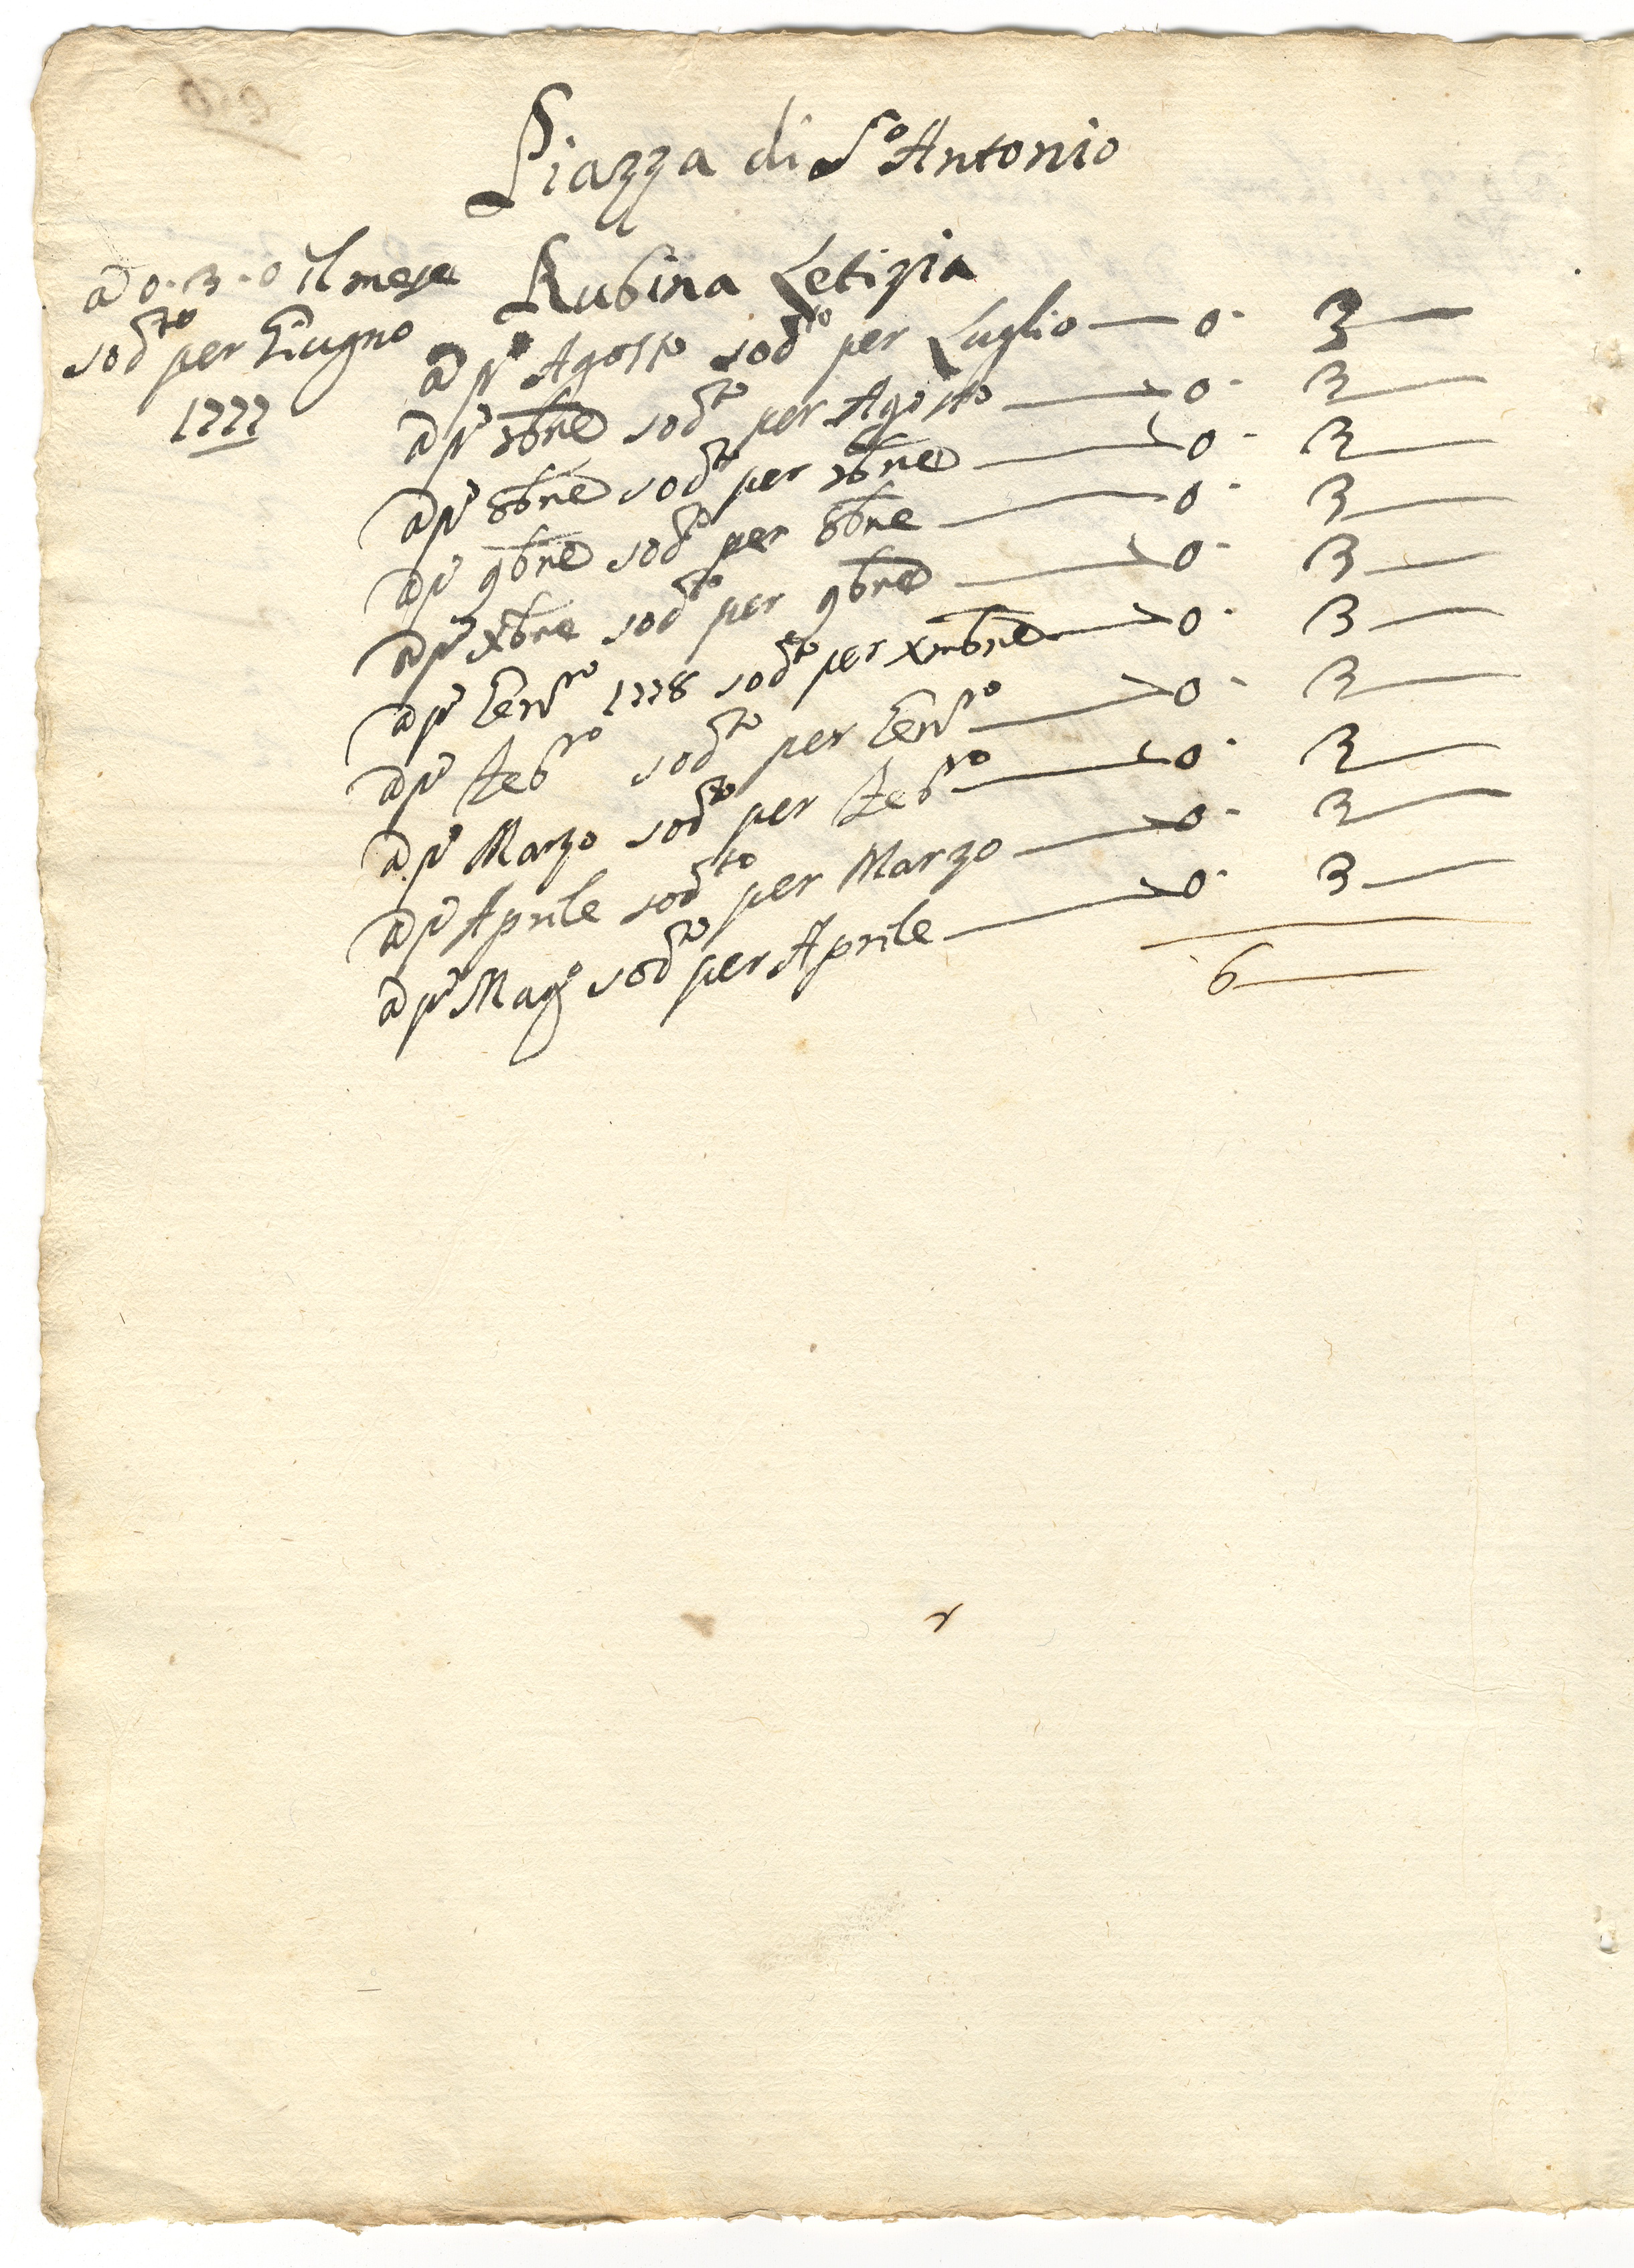 Piazza di S.º Antonio
a 0 . 3 . 0 il mese
sod.to per Giugno
1777
Rubina Letizia
a p.º Agosto sod.to per Luglio — 0 . 3 —
a p.º 7bre sod.to per Agosto — 0 . 3 —
a p.º 8bre sod.to per 7bre — 0 . 3 —
a p.º 9bre sod.to per 8bre — 0 . 3 —
a p.º Xbre sod.to per 9bre — 0 . 3 —
a p.º Gen.ro 1778 sod.to per Xmbre — 0 . 3 —
a p.º Feb.ro sod.to per Gen.ro — 0 . 3 —
a p.º Marzo sod.to per Feb.ro — 0 . 3 —
a p.º Aprile sod.to per Marzo — 0 . 3 —
a p.º Mag.º sod.to per Aprile — 0 . 3 —
6 —